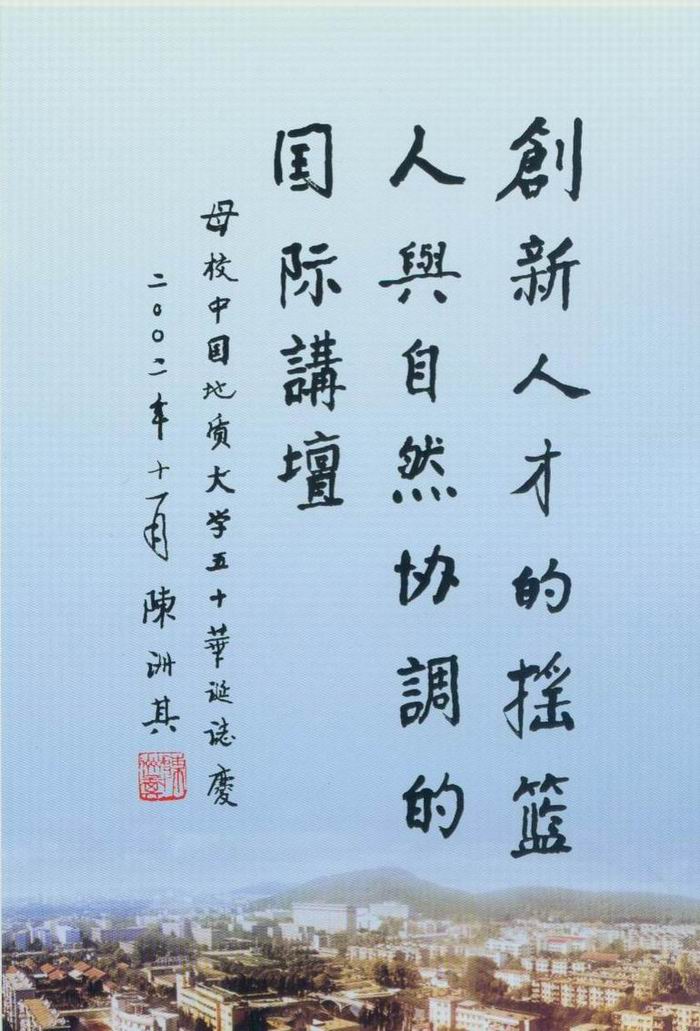 創新人才的摇籃
人與自然协調的
国际講壇
母校中国地质大学五十華诞誌慶
二〇〇二年十一月 陳洲其